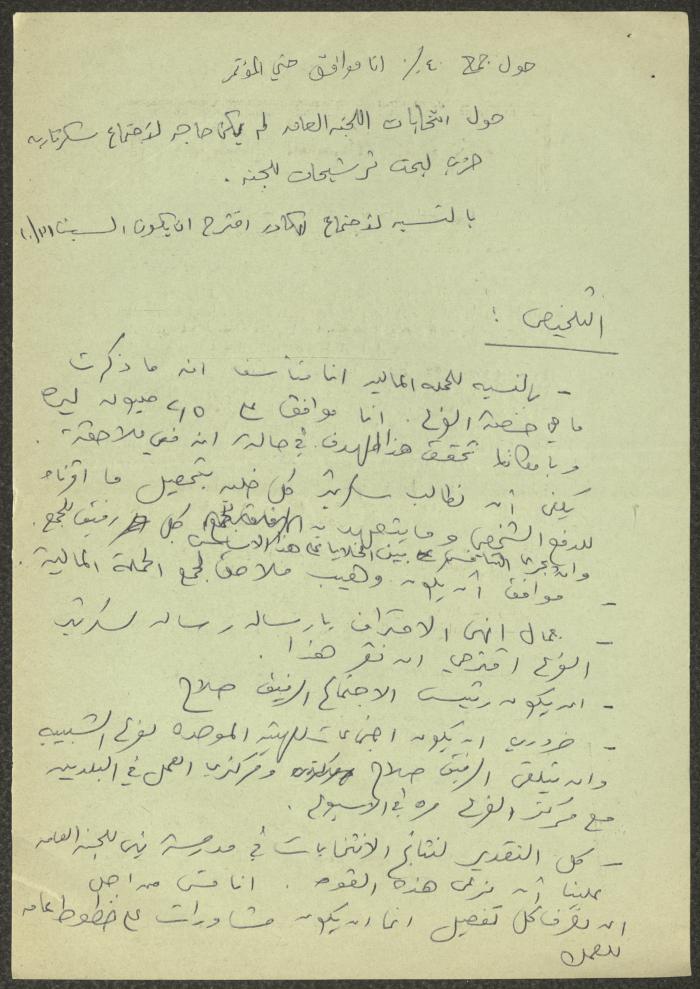 حول جمع ٤٠٪ انا موافق حتي المؤتمر
حول انتخابات اللجنه العامه لم يكن حاجه لاجتماع سكرتاريه
حزب لبحث ترشيحات للجنه .
بالنسبه لاجتماع الكادر اقترح ان يكون السبت ١٠/٣١
التلخيص :
- بالنسبه للحمله الماليه انا متأسف انه ما ذكرت
ما هي حصة الفرع . انا موافق على ٢,٥ مليون ليره
وبامكاننا تحقيق هذا الهدف في حالة انه في ملاحقة .
يعني أن نطالب سكرتير كل خليه بتحصيل ما اقرناه
للدفع الشخصي وما يتعهد به كل رفيق للجمع .
وان يجري التنافس بين الخلايا على هذا الاساس
- موافق أن يكون وهيب ملاحق لجمع الحملة المالية .
- جمال انهى الاحتراف بارسال رسالة لسكرتير
الفرع اقترحي ان نقر هذا .
- ان يكون رئيس الاجتماع الرفيق صلاح
- ضروري ان يكون اجتماعات للهيئة الموحده لفرع الشبيبه
وان يلتقي الرفيق صلاح ومركزي العمل في البلديين
مع مركز الفرع مره في الاسبوع .
- كل التقدير لنتائج الانتخابات في مدرسة للجنة العامه
علينا أن نرعى هذه القوه . انا مش من اجل
ان نعرف كل تفصيل انما ان يكون مشاورات على خطوط عامه
للعمل